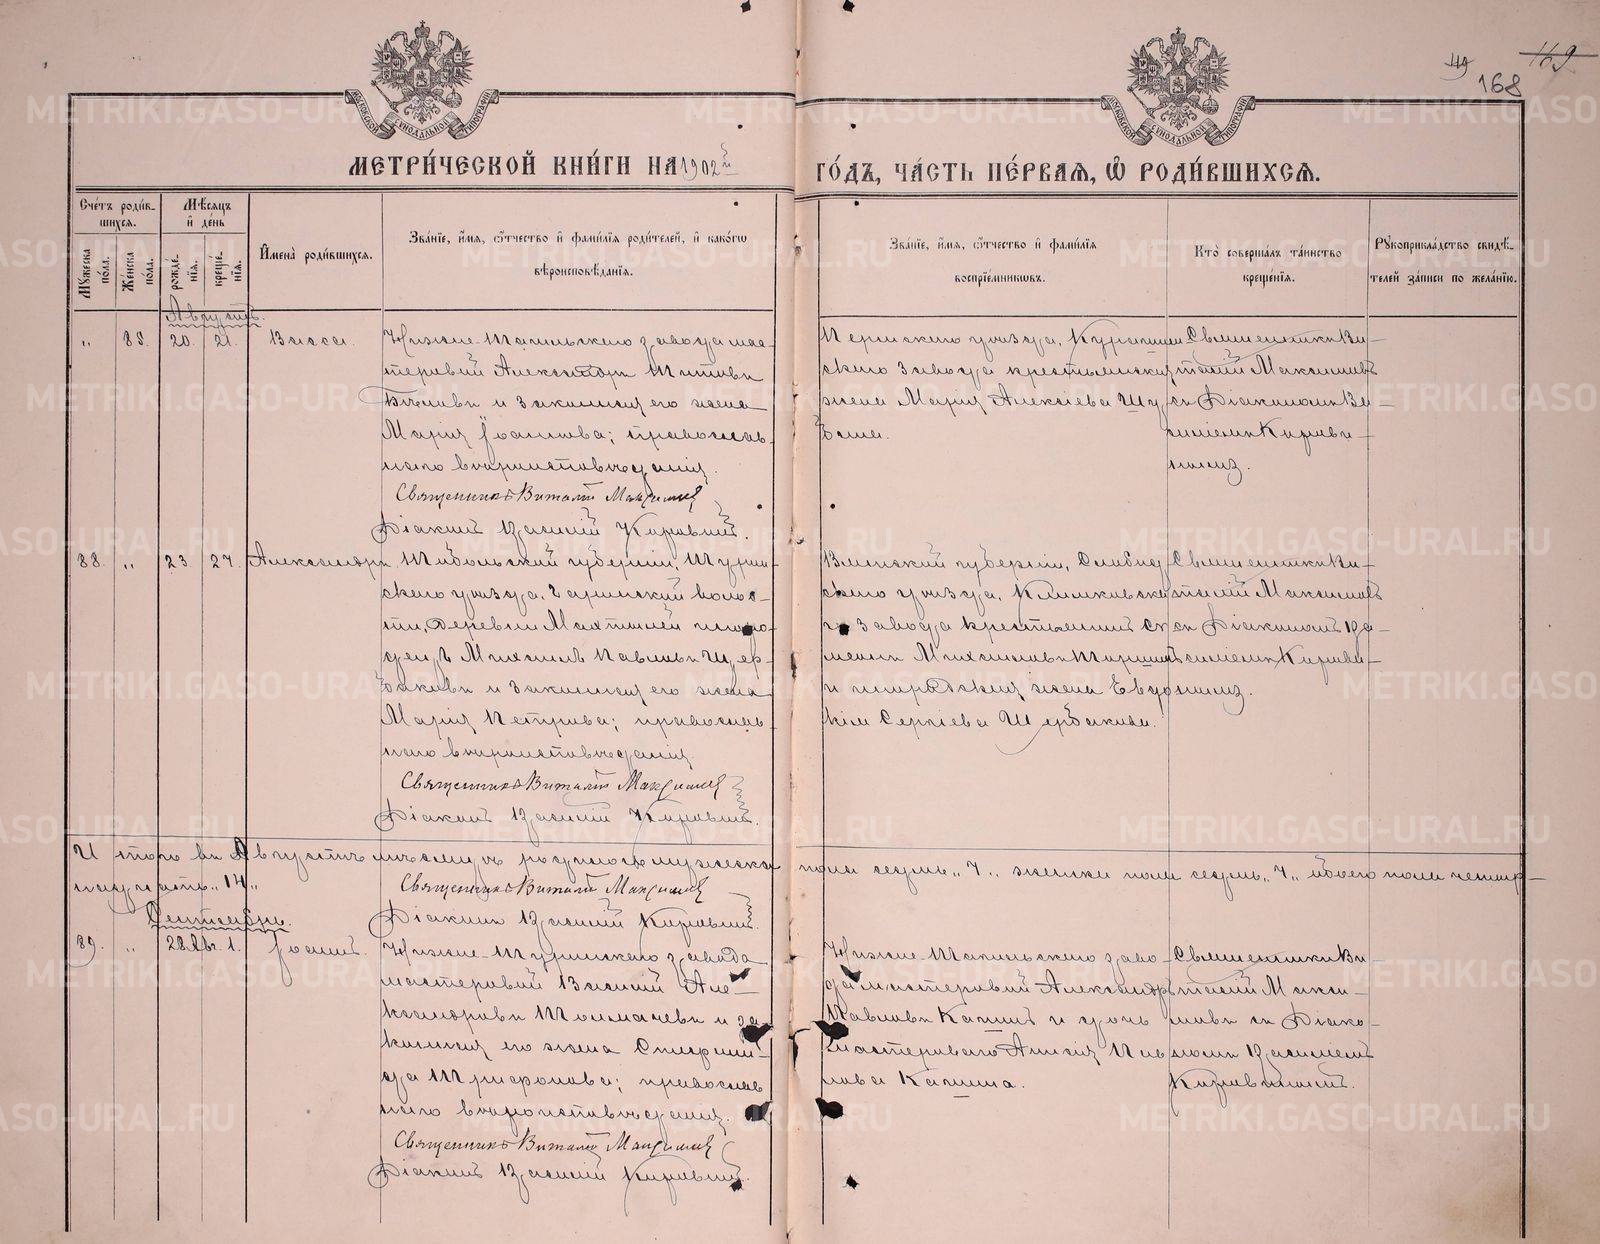 119
169
168
МОСКОВСКОЙ СѴНОДАЛЬНОЙ ТИПОГРАФІИ
МОСКОВСКОЙ СѴНОДАЛЬНОЙ ТИПОГРАФІИ
МЕТРИ́ЧЕСКОЙ КНИ́ГИ НА 1902й ГО́ДЪ, ЧА́СТЬ ПЕ́РВАѦ, Ѡ РОДИ́ВШИХСѦ.
Сче́тъ роди́в-
шихсѧ.
Мꙋжеска по́ла.
Же́нска по́ла.
Мѣ́сѧцъ
и де́нь
рожде́нїѧ.
креще́нїѧ.
Имена̀ роди́вшихсѧ.
Зва́нїе, и́мѧ, ѻ҆́тчество и фамі́лїѧ роди́телей, и како́гѡ
вѣроисповѣ́данїѧ.
Зва́нїе, и́мѧ, ѻ҆́тчество и фамі́лїѧ
воспрїе́мникѡвъ.
Кто̀ соверша́лъ та́инство
креще́нїѧ.
Рꙋкоприкла́дство свидѣ́-
телей за́писи по жела́нїю.
Августъ.
„ 85. 20. 21. Васса.
Нижне-Тагильскаго завода мас-
теровой Александръ Титовъ
Бѣловъ и законная его жена
Марія Іоаннова; православ-
наго вѣроисповѣданія.
Священникъ Виталій Максимовъ
Діаконъ Василій Коровинъ.
Пермскаго уѣзда,
скаго завода крестьянская
жена Марія Алексіева Шу
бина.
Священникъ Ви-
талій Максимовъ
съ Діакономъ Ва-
силіемъ Корови-
нымъ.
88. „ 23. 24. Александръ
Тобольской губерніи, Турин-
скаго уѣзда,
волос-
ти, деревни
Михаилъ Павловъ Щер-
баковъ и законная его жена
Марія Петрова; православ
наго вѣроисповѣданія.
Священникъ Виталій Максимовъ
Діаконъ Василій Коровинъ.
Вятской губерніи, Слобод
скаго уѣзда, Климковска
го завода крестьянинъ
Михаиловъ
жена Евдо
кія Сергіева Щербакова.
Священникъ Ви-
талій Максимовъ
съ Діакономъ Ва-
силіемъ Корови-
нымъ.
Итого въ Августѣ мѣсяцѣ родилось мужеска пола семь „7„ женска пола семь „7„ обоего пола четыр-
надцать „14„
Священникъ Виталій Максимовъ
Діаконъ Василій Коровинъ.
Сентябрь.
89. „ 28 Авг. 1. Іоаннъ.
Нижне-Туринскаго завода
мастеровой Василій Але-
ксандровъ Толмачевъ и за
конная его жена Стефани-
да Трифонова; православ
наго вѣроисповѣданія.
Священникъ Виталій Максимовъ
Діаконъ Василій Коровинъ.
Нижне-Тагильскаго заво-
да мастеровой Александръ
Павловъ Капинъ и дочь
мастероваго Пав
лова Капина.
Священникъ Ви-
талій Макси-
мовъ съ Діако-
номъ Василіемъ
Коровинымъ.
METRIKI.GASO-URAL.RU